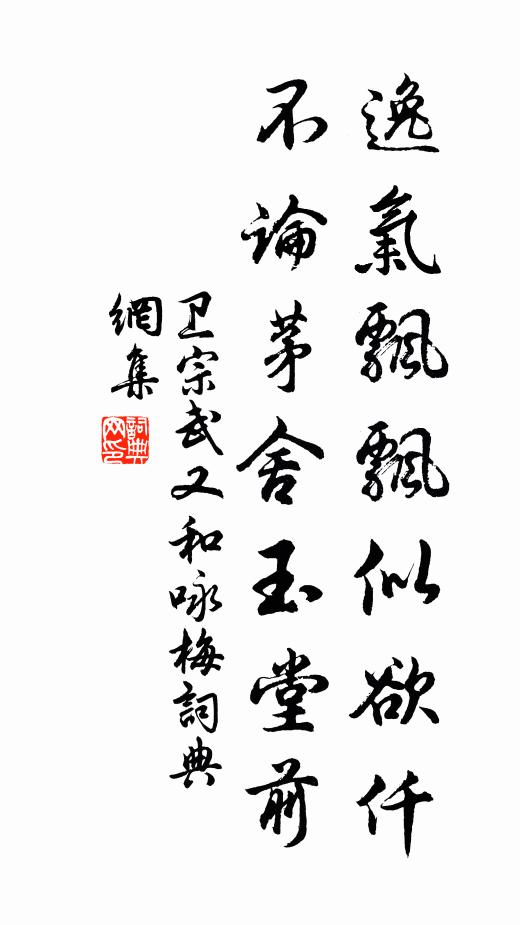 逸氣飄飄似欲仟
不論茅舍玉堂前
卫宗武又和咏梅詞典
網集
詞典
网印